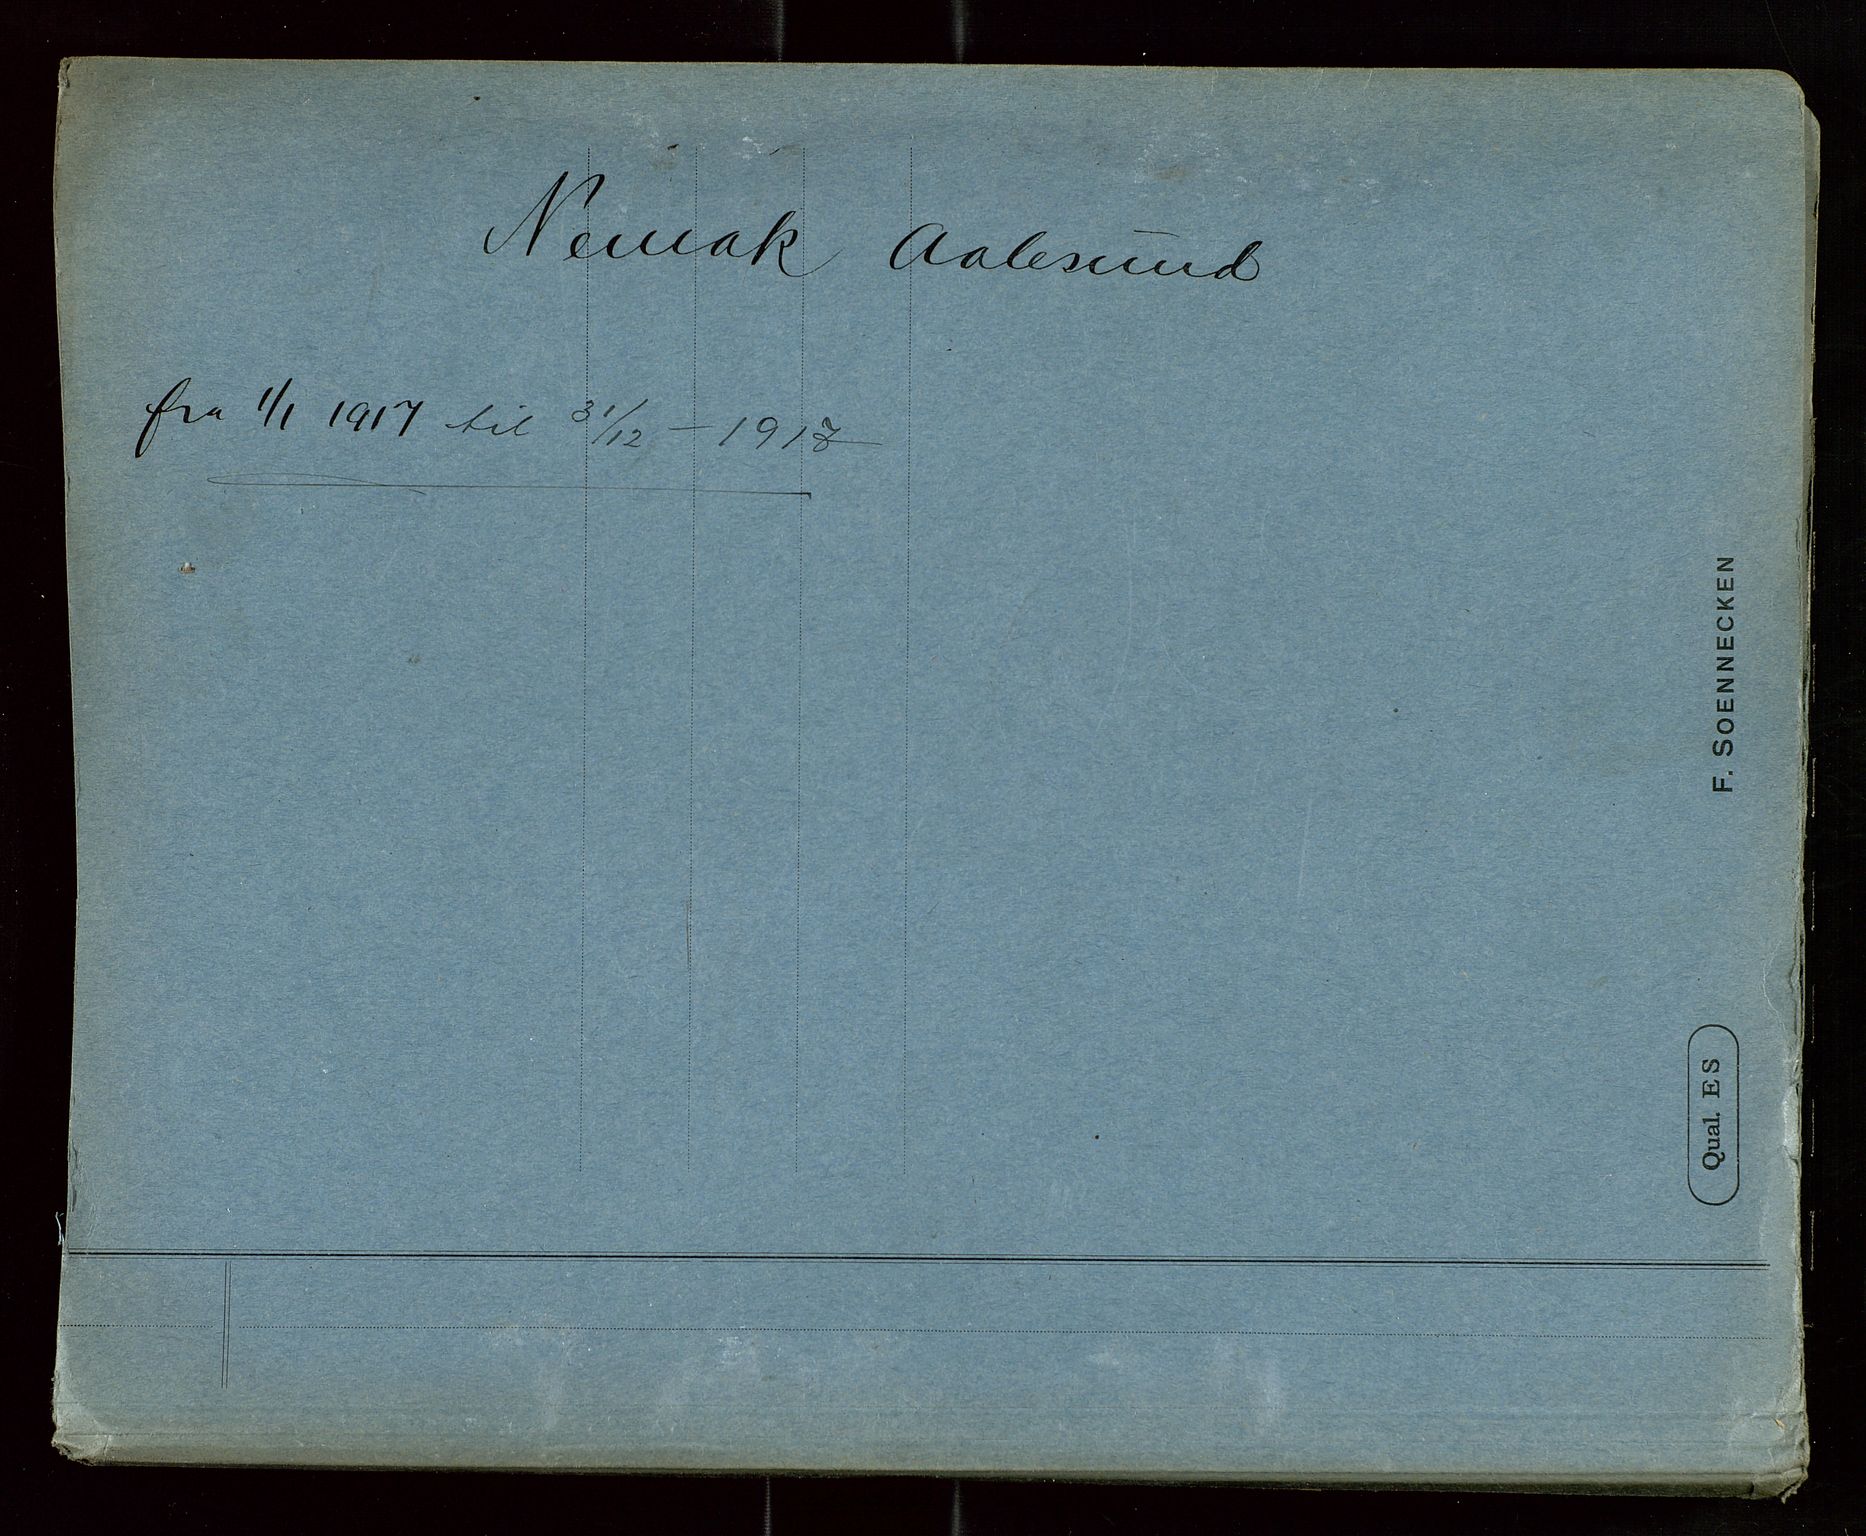 Nemak Aalesund
fra 1/1 1917 til 31/12 – 1917
F. SOENNECKEN
Qual. ES